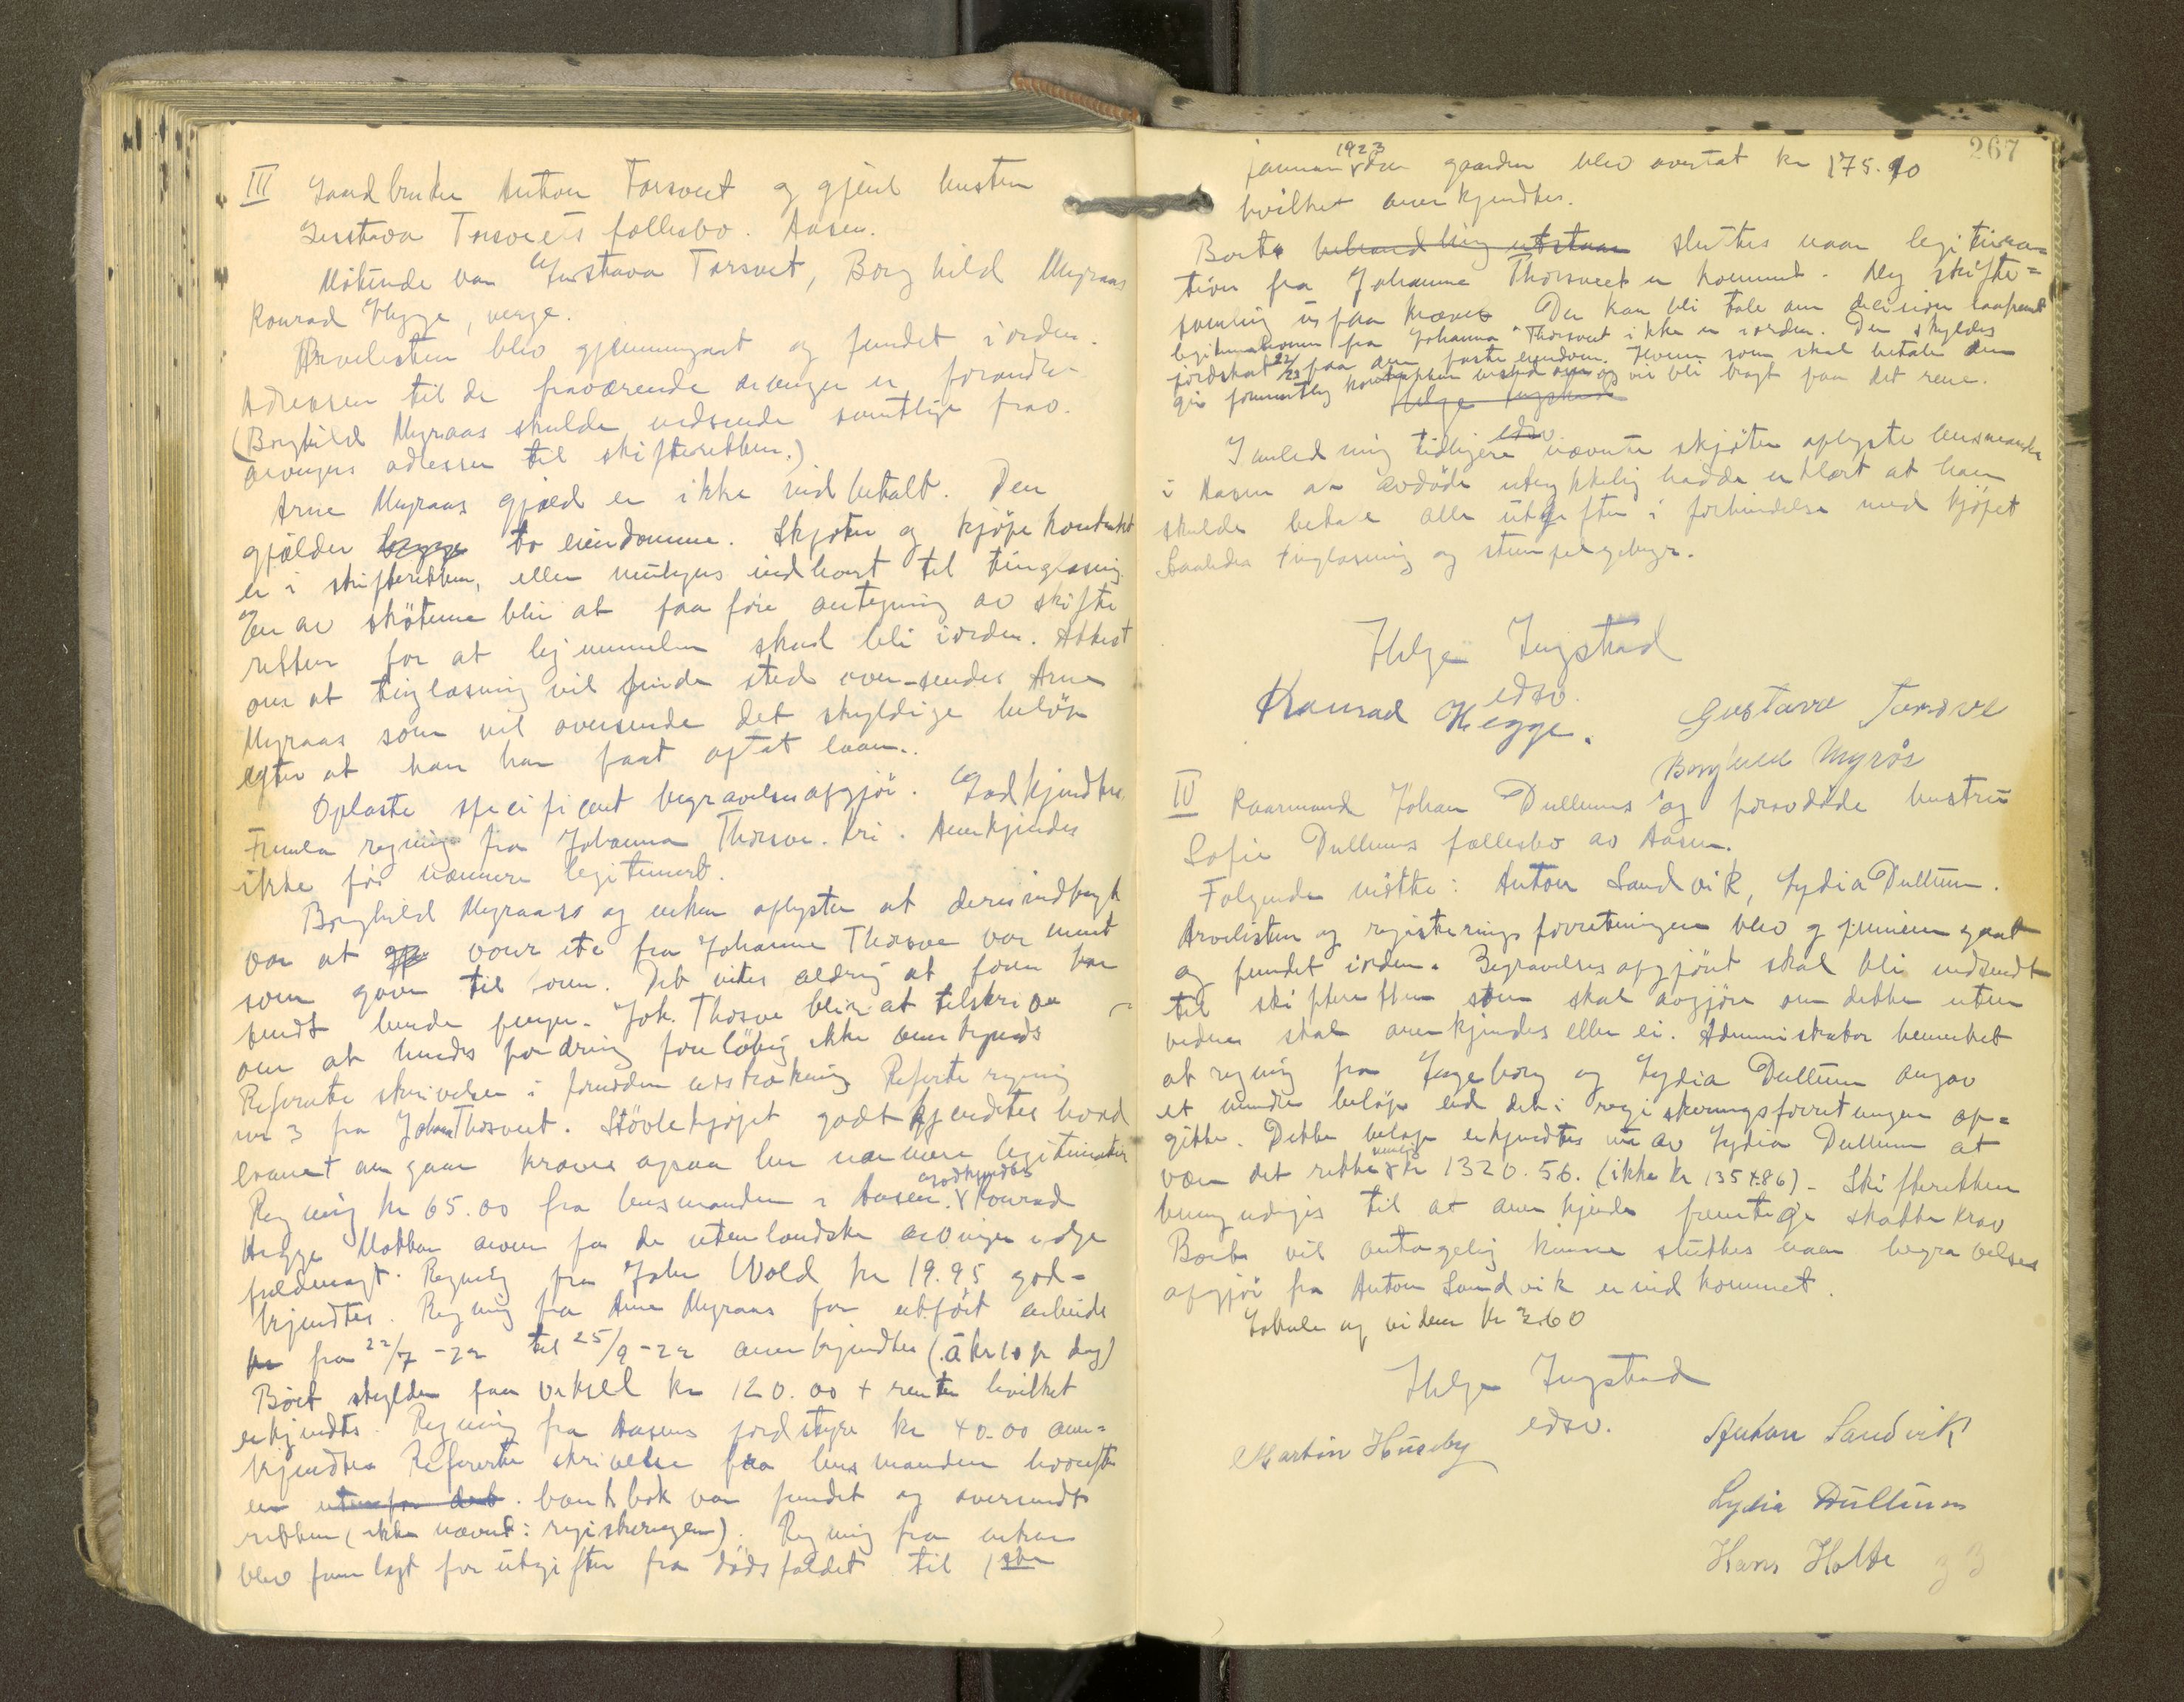 III Gaardbruker Anton Torsvet og gjenl hustru
Gustava Torsvets fællesbo. Aasen.
Møtende var Gustava Torsvet, Borghild Myraas
Konrad Hegge, verge.
Arvelisten blev gjennemgaat og fundet i orden.
Adressen til de fraværende arvinger er forandr-
(Borghild Myraas skulde indsende samtlige frav.
arvingers adresser til skifteretten.)
Arne Myraas gjæld er ikke indbetalt. Den
gjælder to eiendomme. Skjøter og kjøpekontrakt
er i skifteretten, eller muligens indlevert til tinglæsning.
En av skøtene blir at faa før antegning av skifte
retten for at hjemmelen skal bli i orden. Attest
om at tinglæsning vil finde sted over-sendes Arne
Myraas som vil oversende det skyldige beløp
efter at han har faat optat laan.
Oplæste specificert begravelsesopgjør. Godkjendtes.
regning fra Johanna Thorsve. Kri. Anerkjendes
ikke før nærmere legitimert.
Borghild Myraas og enken oplyste at deres indtryk
var at var fra Johanna Thorsve var ment
som gave til . Det vites aldrig at faren har
sendt hende penger. Joh. Thorsve blir at tilskrive
om at hendes fordring foreløbig ikke anerkjendes
Refererte skrivelse i Refererte regning
nr 3 fra Johan Thorsvet. Støvlekjøpet godtkjendtes hvad
laanet angaar kræves ogsaa her nærmere legitimation
Regning kr 65.00 fra lensmanden i Aasen godkjendtes. Konrad
Hegge Mottar arven for de utenlandske arvinger ifølge
fuldmagt. Regning fra John Wold kr 19.95 god-
kjendtes. Regning fra Arne Myraas for utført arbeide
fra 22/7 -22 til 25/9 -22 anerkjendtes (à kr 10 pr dag)
Boet skylder paa veksel kr 120.00 + renter hvilket
erkjendtes. Regning fra Aasens jordstyre kr 40.00 aner=
kjendtes Refererte skrivelse fra lensmanden hvorefter
en bankbok var fundet og oversendt
retten (ikke nævnt i registreringen). Regning fra enken
blev fremlagt for utgifter fra dødsfaldet til 1ste
267
januar 1923 da gaarden blev overtat kr 175.10
hvilket anerkjendtes.
Boets behandling utstaar sluttes naar legitima=
tion fra Johanna Thorsveet er kommet. Ny skifte=
samling kræves Der kan bli tale om decision saafremt
legitimationen fra Johanna Thorsvet ikke er i orden. Der skyldes
jordskat 22/23 paa den faste eiendom. Hvem som skal betale den
vil bli bragt paa det rene.
Helge Ingstad
edsv
I anledning tidligere nævnte skjøter oplyste lensmanden
i Aasen at avdøde uttrykkelig hadde erklært at han
skulde betale alle utgifter i forbindelse med kjøpet
Saaledes tinglæsning og stempelgebyr.
Helge Ingstad
edsv.
Konrad Hegge. Gustava Torsve
Borghild Myrås
IV Kaarmand Johan Dullums og foravdøde hustru
Sofie Dullums fællesbo av Aasen.
Følgende møtte: Anton Sandvik, Lydia Dullum.
Arvelisten og registreringsforretningen blev gjennemgaat
og fundet i orden. Begravelsesopgjøret skal bli indsendt
til skifteretten som skal avgjøre om dette uten
videre skal anerkjendes eller ei. Administrator bemerket
at regning fra Ingeborg og Lydia Dullum angav
et mindre beløp end det i registreringsforretningen op=
gitte. Dette beløp erkjendtes nu av Lydia Dullum at
være det rette nemlig kr 1320.56. (ikke kr 1354.86) - Skifteretten
bemyndiges til at anerkjende fremtidige skattekrav
Boet vil antagelig kunne sluttes naar begravelses
opgjør fra Anton Sandvik er indkommet.
Lokale og vidner kr 3.60
Helge Ingstad
edsv.
Martin Husby Anton Sandvik
Lydia Dullum
Hans Holte